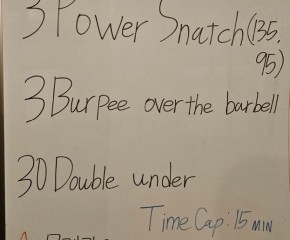 3 Power Snatch (135.
95)
3 Burpee over the barbell
30 Double under
Time Cap: 15 MIN